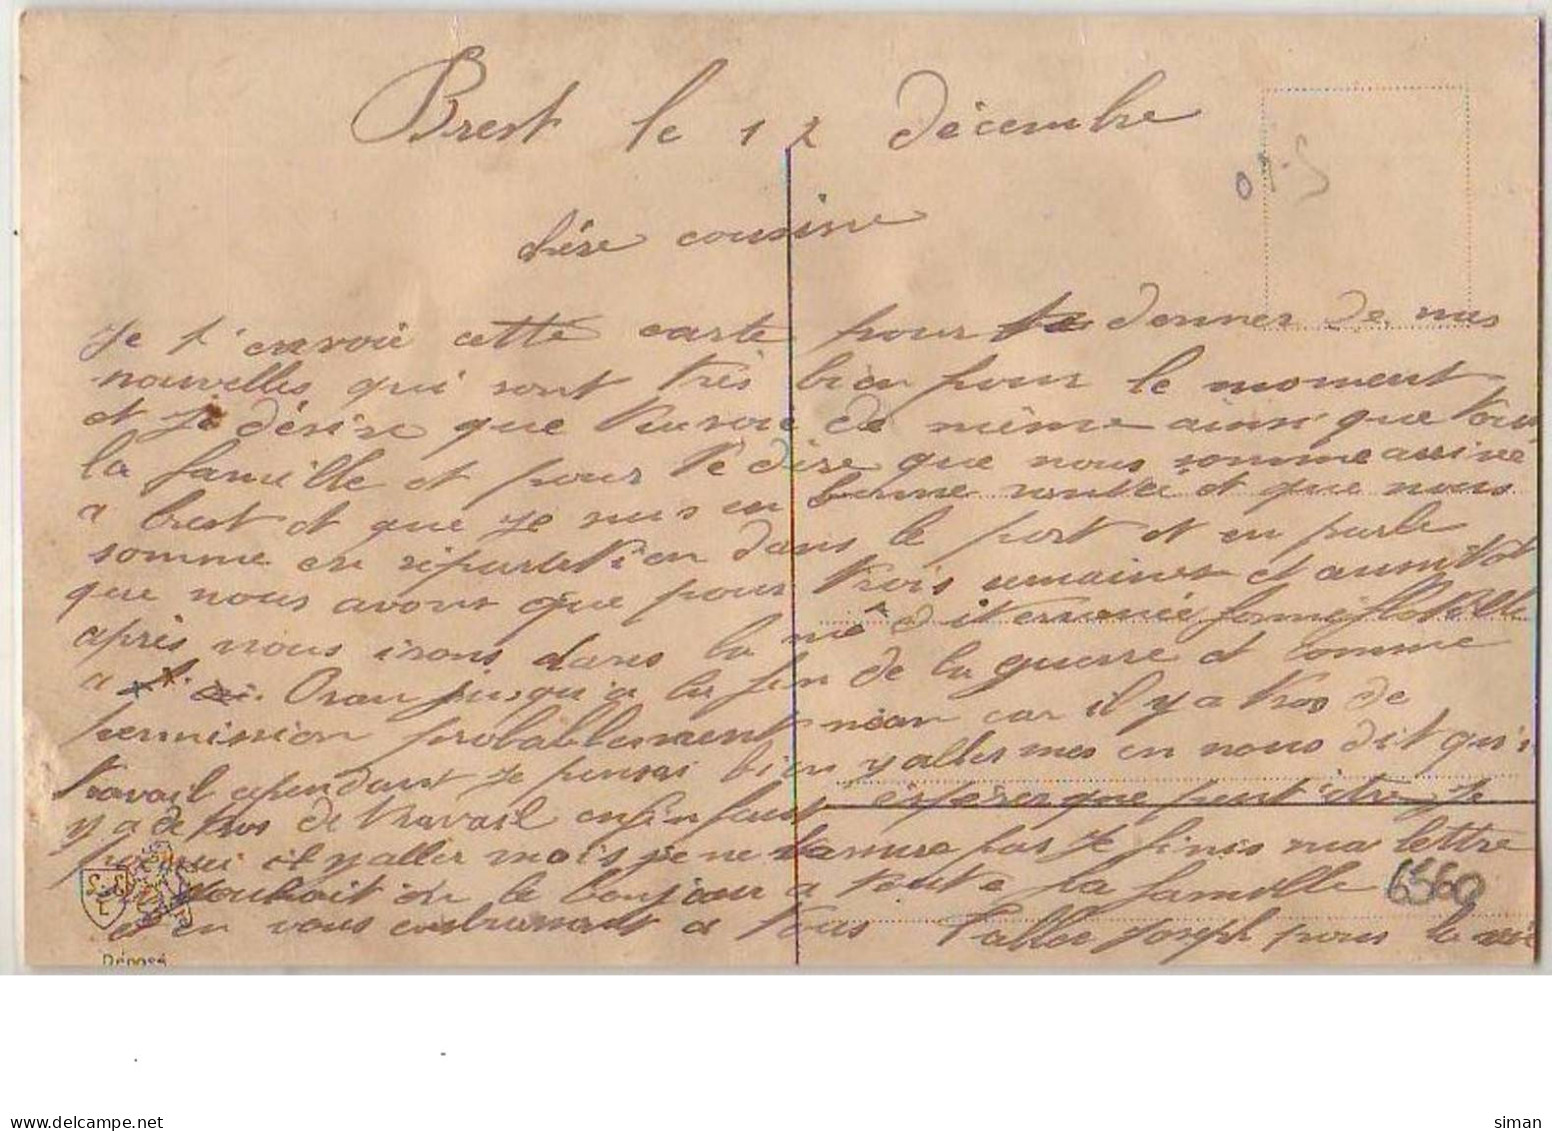 Brest le 12 décembre
chére cousine
Je t'envoie cette carte pour te donner de mes
nouvelles qui sont très bien pour le moment
et je désire que de même ainsi que tous
la famille et pour te dire que nous somme arrivé
a brest et que je suis en bonne santé et que nous
somme en dans le port et en parle
que nous avons que pour trois semaines et aussitôt
après nous irons dans la
a Oran jusqu'a la fin de la guerre et comme
permission probablement car il y a tros de
travail cependant je pensai bien y aller mes en nous dit qu'i
y a de tros de travail enfin faut espérer que peut être je
y aller mois je ne pas je finis ma lettre
en le bonjour a toute la famille
en vous a tous Joseph pour la vie
6560
S.S.
L
Déposé
www.delcampe.net
siman